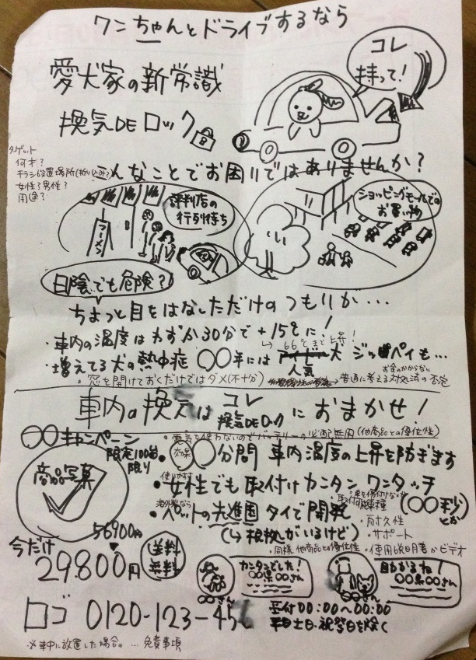 ワンちゃんとドライブするなら
愛犬家の新常識
コレ
持って！
換気DEロック
ターゲット
何才？
チラシ設置場所(折り込み？)
女性？男性？
用途？
んなことでお困りではありませんか？
評判店の
行列待ち
ラーメン
ショッピングモールでの
お買い物
日陰でも危険？
ちょっと目をはなしただけのつもりが…
・車内の温度はわずか30分で＋15℃に！
・増えてる犬の熱中症 〇〇年には
人気
犬 ジッ
ペイも…
・窓を開けておくだけではダメ(不十分)
車内の換気はコレ
換気DEロックにおまかせ！
〇〇キャンペーン
限定100個
限り
商品写真
効果
〇〇分間 車内温度の上昇を防ぎます
・女性でも取付けカンタン ワンタッチ
(〇〇秒)
とか
・ペットの先進国タイで開発
(↳根拠がいるけど)
・耐久性
・サポート
・使用説明書かビデオ
56900円
今だけ
29800円
送料
無料
カンタンでした！
〇〇県〇〇さん
〇〇さん
〇〇県〇〇さん
ロゴ 0120-123-456
受付00:00～00:00
平日土日・祝祭日を除く
※車中に放置した場合。…免責事項